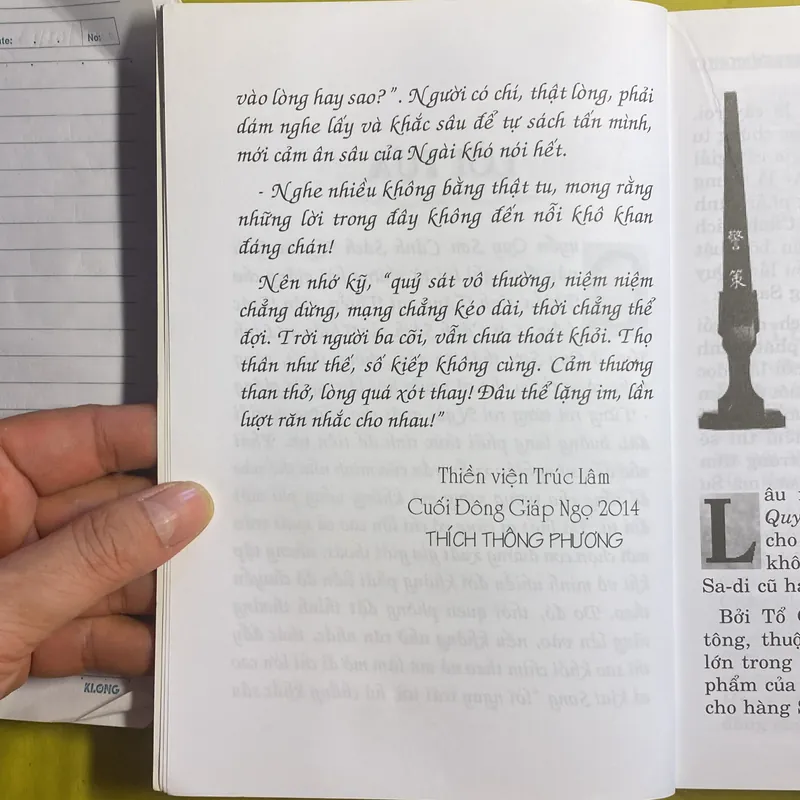 No:
KLONG
vào lòng hay sao?”. Người có chí, thật lòng, phải
dám nghe lấy và khắc sâu để tự sách tấn mình,
mới cảm ân sâu của Ngài khó nói hết.
- Nghe nhiều không bằng thật tu, mong rằng
những lời trong đây không đến nỗi khô khan
đáng chán!
Nên nhớ kỹ, “quỷ sát vô thường, niệm niệm
chẳng dừng, mạng chẳng kéo dài, thời chẳng thể
đợi. Trời người ba cõi, vẫn chưa thoát khỏi. Thọ
thân như thế, số kiếp không cùng. Cảm thương
than thở, lòng quá xót thay! Đâu thể lặng im, lần
lượt răn nhắc cho nhau!”
Thiền viện Trúc Lâm
Cuối Đông Giáp Ngọ 2014
THÍCH THÔNG PHƯƠNG
警
策
Lâu
Quy
cho
khô
Sa-di cũ
Bởi Tổ
tông, thuộ
lớn trong
phẩm của
cho hàng